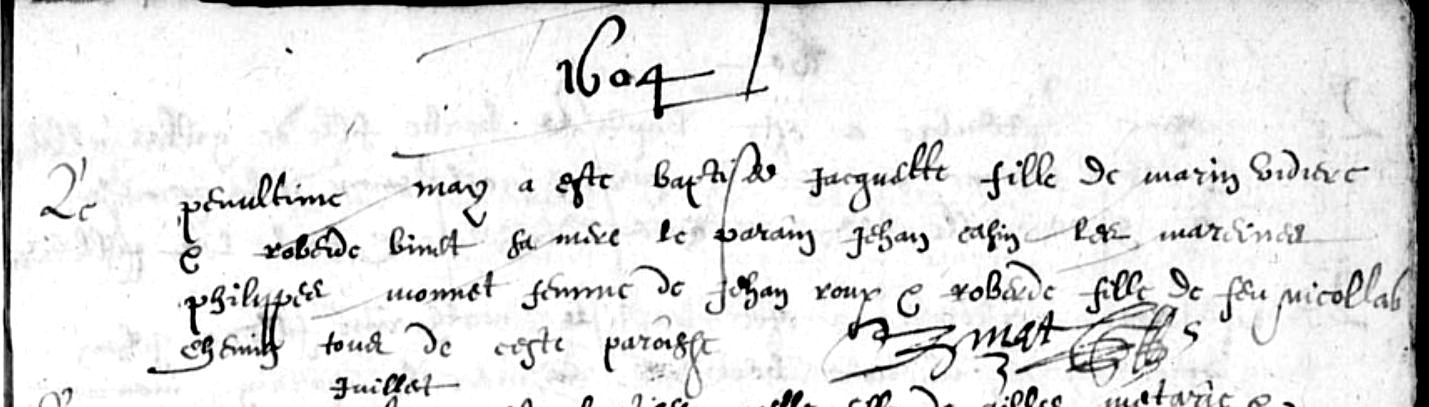 1604
Le penultime may a este baptisée Jacquette fille de marin vidiere
& roberde binet sa mere le parain Jehan casin les mareines
philippes monnet femme de Jehan roux & roberde fille de feu nicollas
chemin tous de ceste paroisse
Juillet
fille de gilles